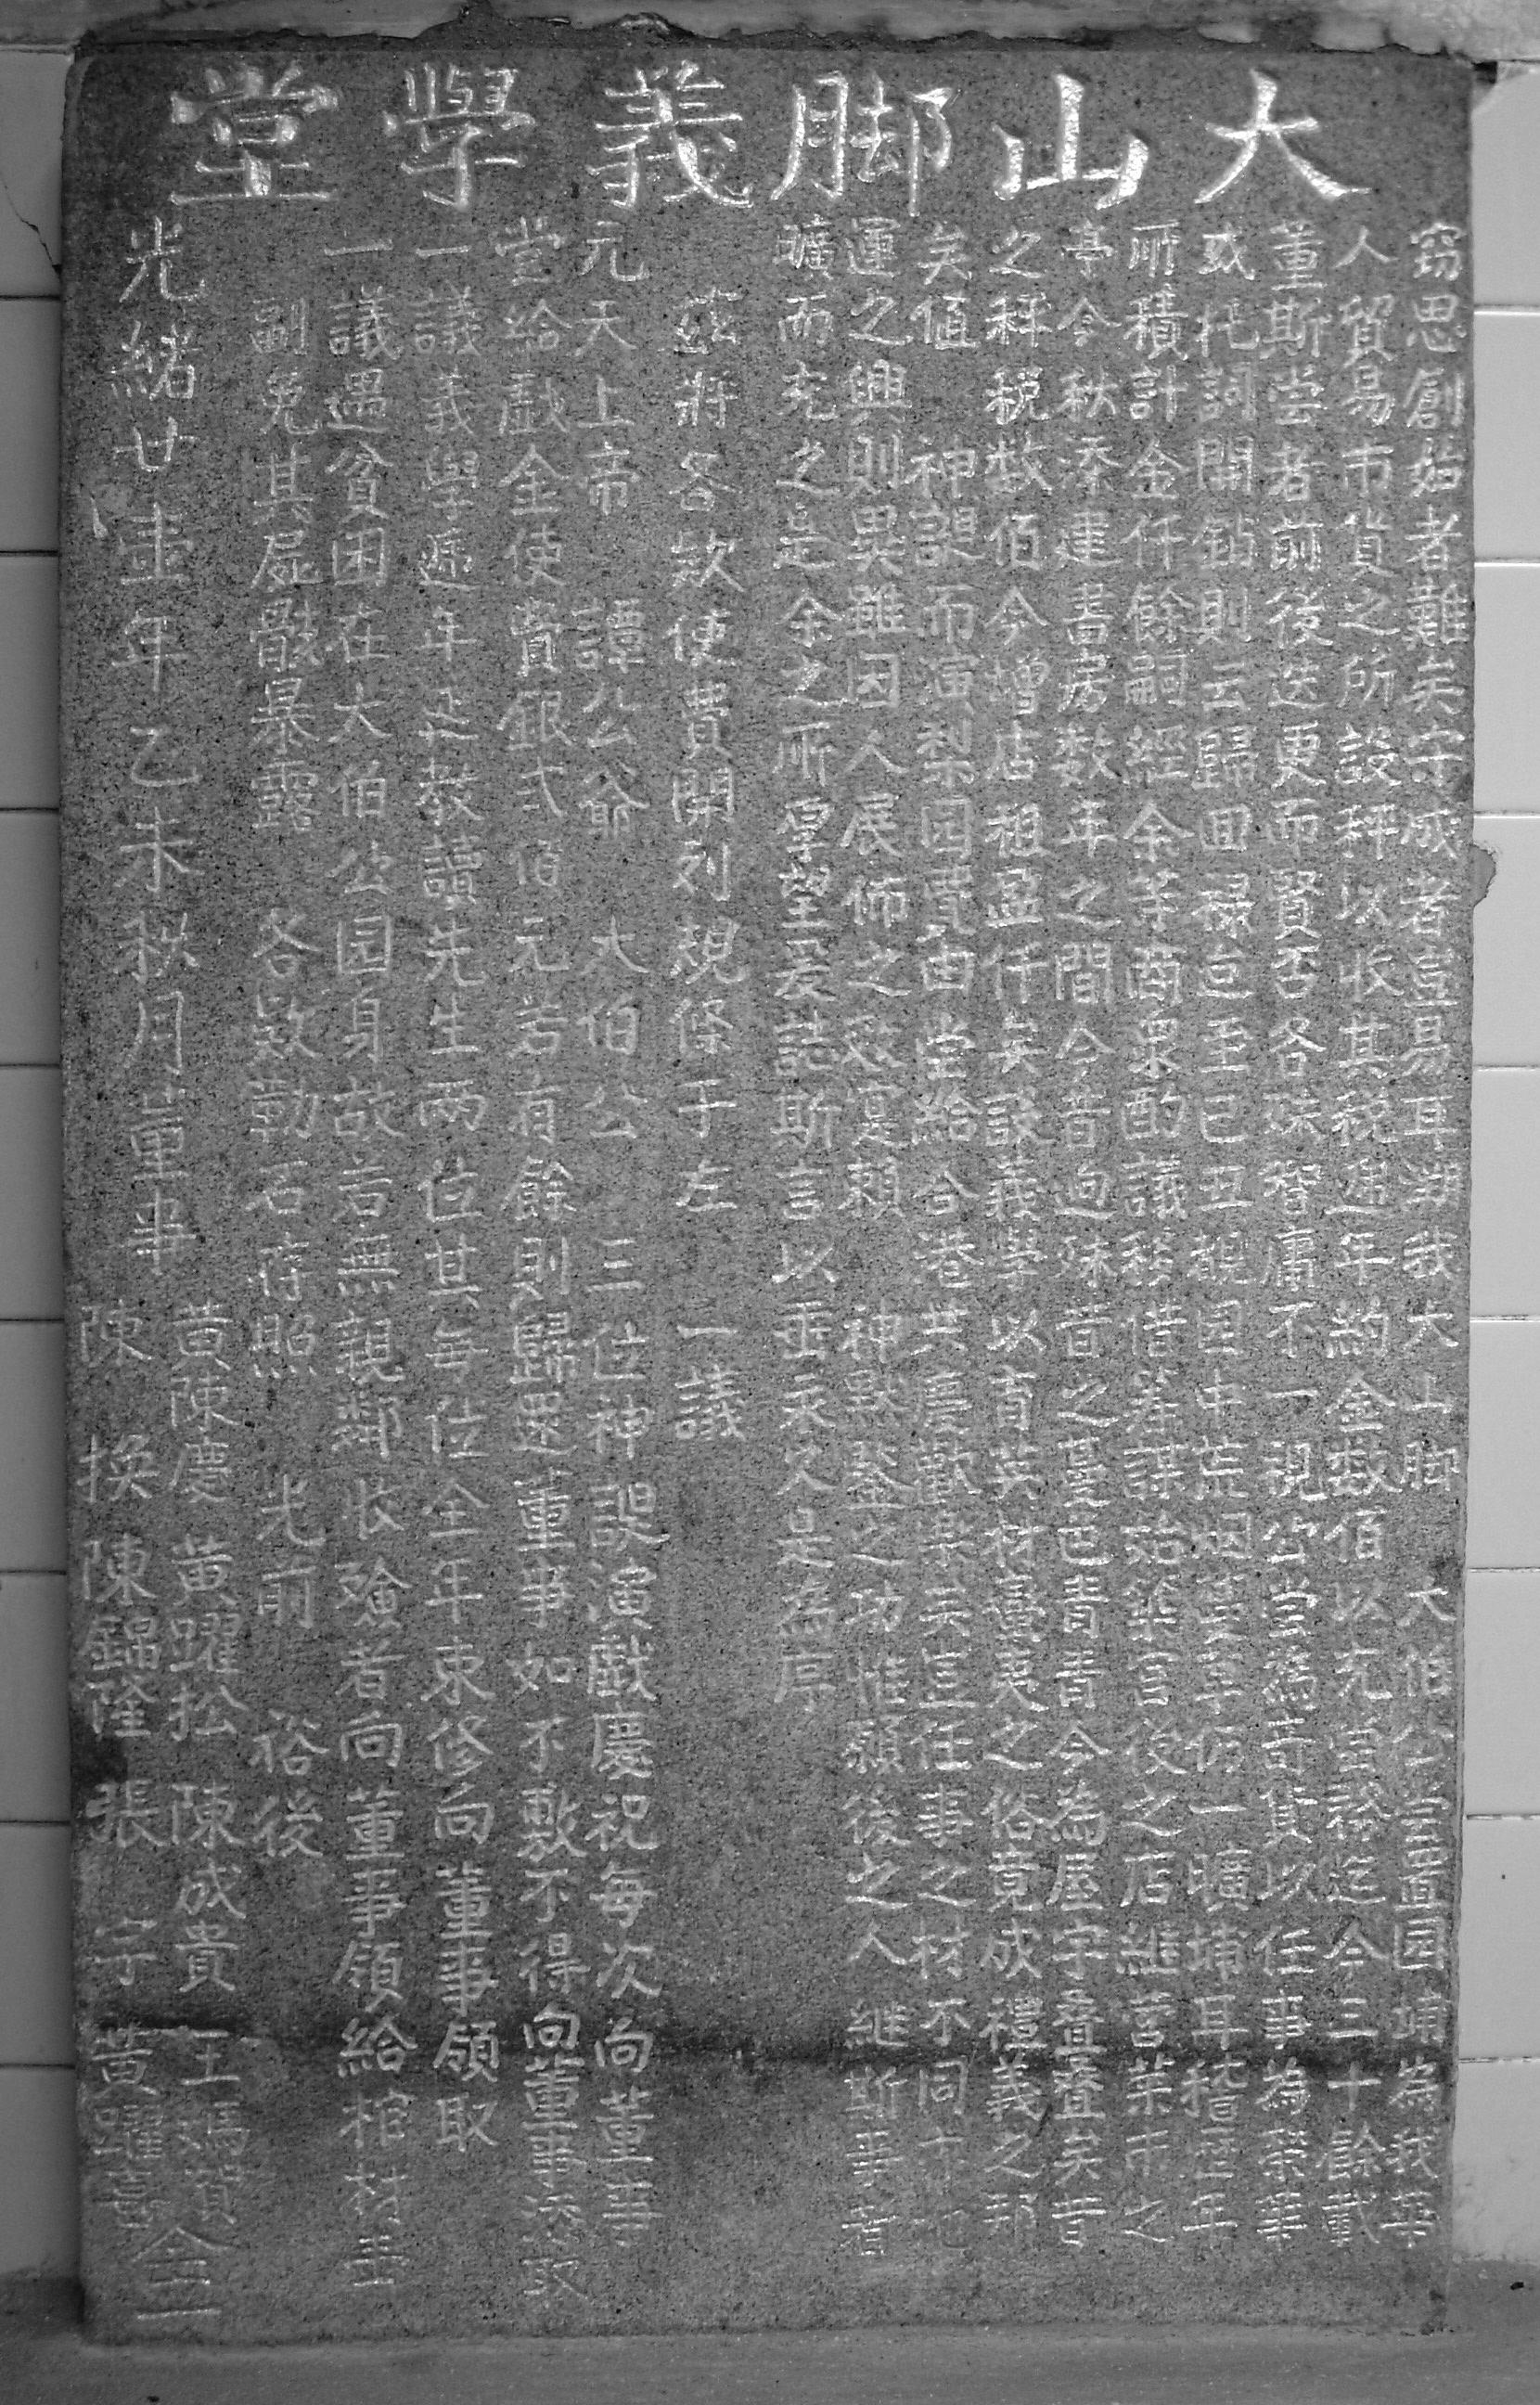 大山脚義學堂
窃思創始者難矣守成者豈易耳溯我大山脚 大伯公宮面园埔為我華
人貿易市貨之所設秤以收其税遞年約金数佰以充宮緣迄今三十餘載
董斯堂者前後迭更而賢否各殊智庸不一視公堂為奇貨以任事為榮華
或托詞開銷則云歸回祿迨至已丑親园中荒烟臺亭仍一曠埔耳稽歷年
所積計金仟餘嗣經余等商眾酌議移借筹謀始築宮後之店継营菜市之
亭今秋添建書房数年之間今昔迥殊昔之臺邑青青今為屋宇叠叠矣昔
之秤税数佰今增店租盈仟矣設義學以育英材臺夷之俗竟成禮義之邦
矣值 神誕而演梨园費由堂給合港共慶歡樂矣豈任事之材不同
運之興則異雖因人展佈之际寔賴 神默鉴之功惟願後之人 継斯事者
曠而充之是余之所厚望爰誌斯言以垂永久是為序
茲將各欵使費開列規條于左 一議
元天上帝 譚公爺 大伯公 三位神誕演戲慶祝每次向董事
堂給戲金使費銀弍佰元若有餘則歸還董事如不敷不得向董事添取
一議義學遞年延教讀先生两位其每位全年束修向董事領取
一議遇貧困在大伯公园身故若無親鄰收殮者向董事領給棺材壹
副免其屍骸暴露 各欵勒石存照 光前 裕後
光緒廿壹年乙未秋月董事
黃陳慶 黃躍松 陳成貴 王 賀 仝立
陳換 陳錦隆 張宇 黃躍